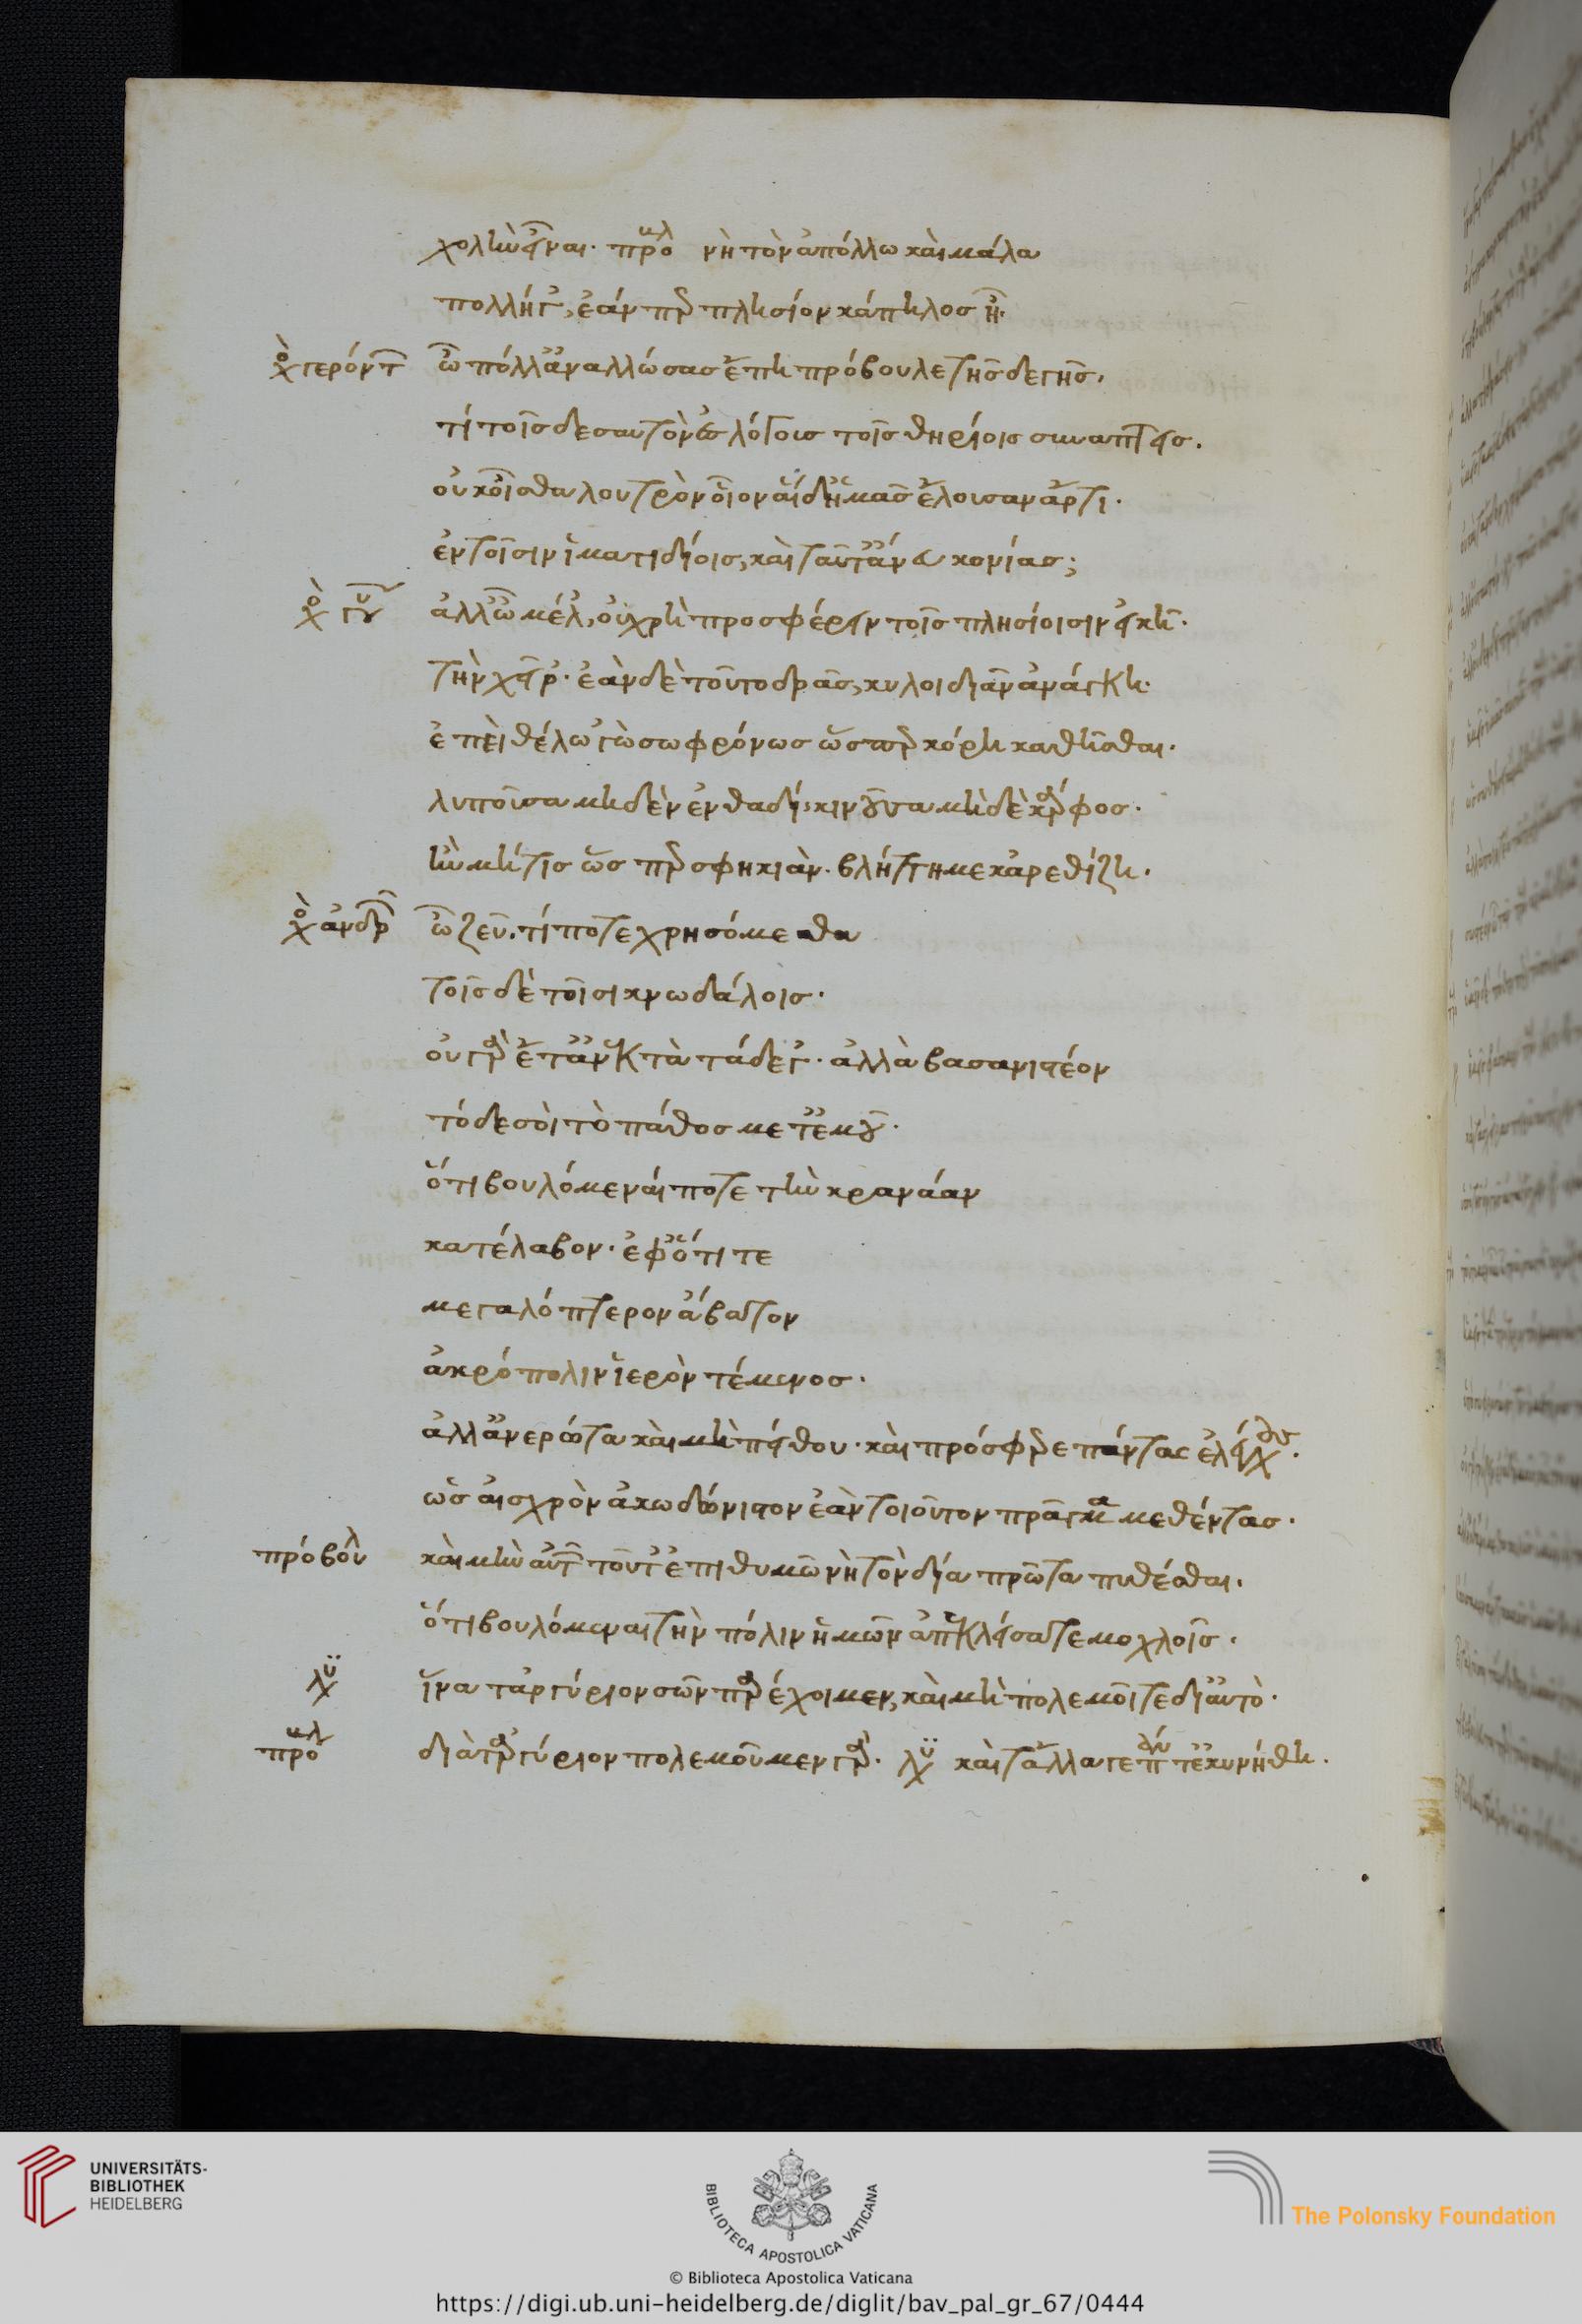 χολὴν εἶναι. πρό νὴ τὸν ἀπόλλω καὶ μάλα
πολλήγ', ἐάν περ πλησίον κάπηλος ᾖ.
χο γερόντ ὦ πόλλ' ἀναλλώσας ἔπη πρόβουλε τῆσδε γῆς.
τί τοῖσδε σαυτὸν λόγοις τοῖς θηρίοις συνάπτεις.
οὐκ οἶσθα λουτρὸν οἷον αἵδ' ἡμᾶς ἔλουσαν ἄρτι.
ἐν τοῖσιν ἱματιδίοις, καὶ ταῦτ' ἄνευ κονίας;
χο γυ ἀλλ' ὦ μέλ', οὐ χρὴ προσφέρειν τοῖς πλησίοισιν εἰκῆ.
τὴν χεῖρ'. ἐὰν δὲ τοῦτο δρᾷς, κυλοιδιᾶν ἀνάγκη.
ἐπεὶ θέλω 'γὼ σωφρόνως ὥσπερ κόρη καθῆσθαι.
λυποῦσα μηδὲν ἐνθαδί, κινοῦσα μηδὲ κάρφος.
ἢν μή τις ὥσπερ σφηκιὰν. βλήττῃ με κἀρεθίζῃ.
χο ἀνδρ ὦ ζεῦ. τί ποτε χρησόμεθα
τοῖς δὲ τοῖσι κνωδάλοις.
οὐ γὰρ ἔτ' ἀνεκτὰ τάδε γ'. ἀλλὰ βασανιστέον
τόδε σοὶ τὸ πάθος μετ' ἐμοῦ.
ὅτι βουλόμεναί ποτε τὴν κραναάν
κατέλαβον. ἐφ' ὅτι τε
μεγαλόπτερον ἄβατον
ἀκρόπολιν ἱερὸν τέμενος.
ἀλλ' ἀνερώτα καὶ μὴ πείθου. καὶ πρόσφερε πάντας ἐλέγχους.
ὡς αἰσχρὸν ἀκωδώνιστον ἐὰν τοιοῦτον πρᾶγμα μεθέντας.
πρόβουλ καὶ μὴν αὐτῶν τοῦτ' ἐπιθυμῶ νὴ τὸν δία πρῶτα πυθέσθαι.
ὅτι βουλόμεναι τὴν πόλιν ἡμῶν ἀπεκλείσατε μοχλοῖς.
λυ ἵνα τἀργύριον σῶν παρέχοιμεν, καὶ μὴ πολεμοῖτε δι' αὐτό.
πρό διὰ τἀργύριον πολεμοῦμεν γάρ. λυ καὶ τἄλλα γε πάντ' ἐκυκήθη.
UNIVERSITÄTS-
BIBLIOTHEK
HEIDELBERG
BIBLIOTECA APOSTOLICA VATICANA
The Polonsky Foundation
© Biblioteca Apostolica Vaticana
https://digi.ub.uni-heidelberg.de/diglit/bav_pal_gr_67/0444